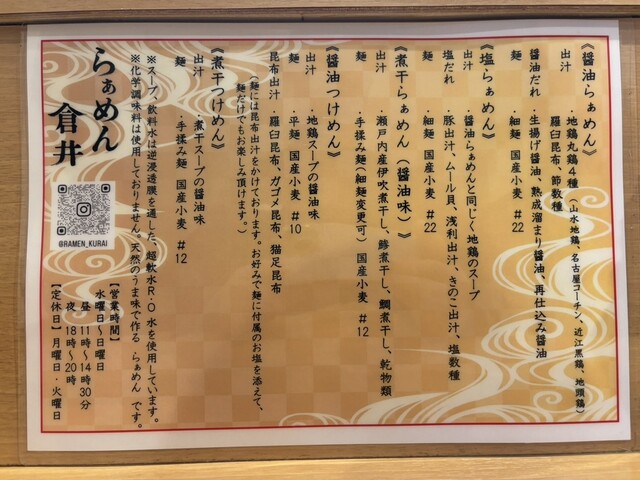 《醤油らぁめん》
出汁 ・地鶏丸鶏4種(山水地鶏、名古屋コーチン、近江黒鶏、地頭鶏)
羅臼昆布 節数種
醤油だれ ・生揚げ醤油、熟成溜まり醤油、再仕込み醤油
麺 ・細麺 国産小麦 #22
《塩らぁめん》
出汁 ・醤油らぁめんと同じく地鶏のスープ
塩だれ ・豚出汁、ムール貝、浅利出汁、きのこ出汁、塩数種
麺 ・細麺 国産小麦 #22
《煮干らぁめん(醤油味)》
出汁 ・瀬戸内産伊吹煮干し、鯵煮干し、鯛煮干し、乾物類
麺 ・手揉み麺(細麺変更可)国産小麦 #12
《醤油つけめん》
出汁 ・地鶏スープの醤油味
麺 ・平麺 国産小麦 #10
昆布出汁 羅臼昆布、ガゴメ昆布、猫足昆布
(麺には昆布出汁をかけております。お好みで麺に付属のお塩を添えて、
麺だけでもお楽しみ頂けます。)
《煮干つけめん》
出汁 ・煮干スープの醤油味
麺 ・手揉み麺 国産小麦 #12
※スープ、飲料水は逆浸透膜を通した、超軟水R.O水を使用しています。
※化学調味料は使用しておりません。天然のうま味で作る らぁめん です。
らぁめん 倉井
@RAMEN_KURAI
【営業時間】
水曜日〜日曜日
昼 11時〜14時30分
夜 18時〜20時
【定休日】月曜日・火曜日